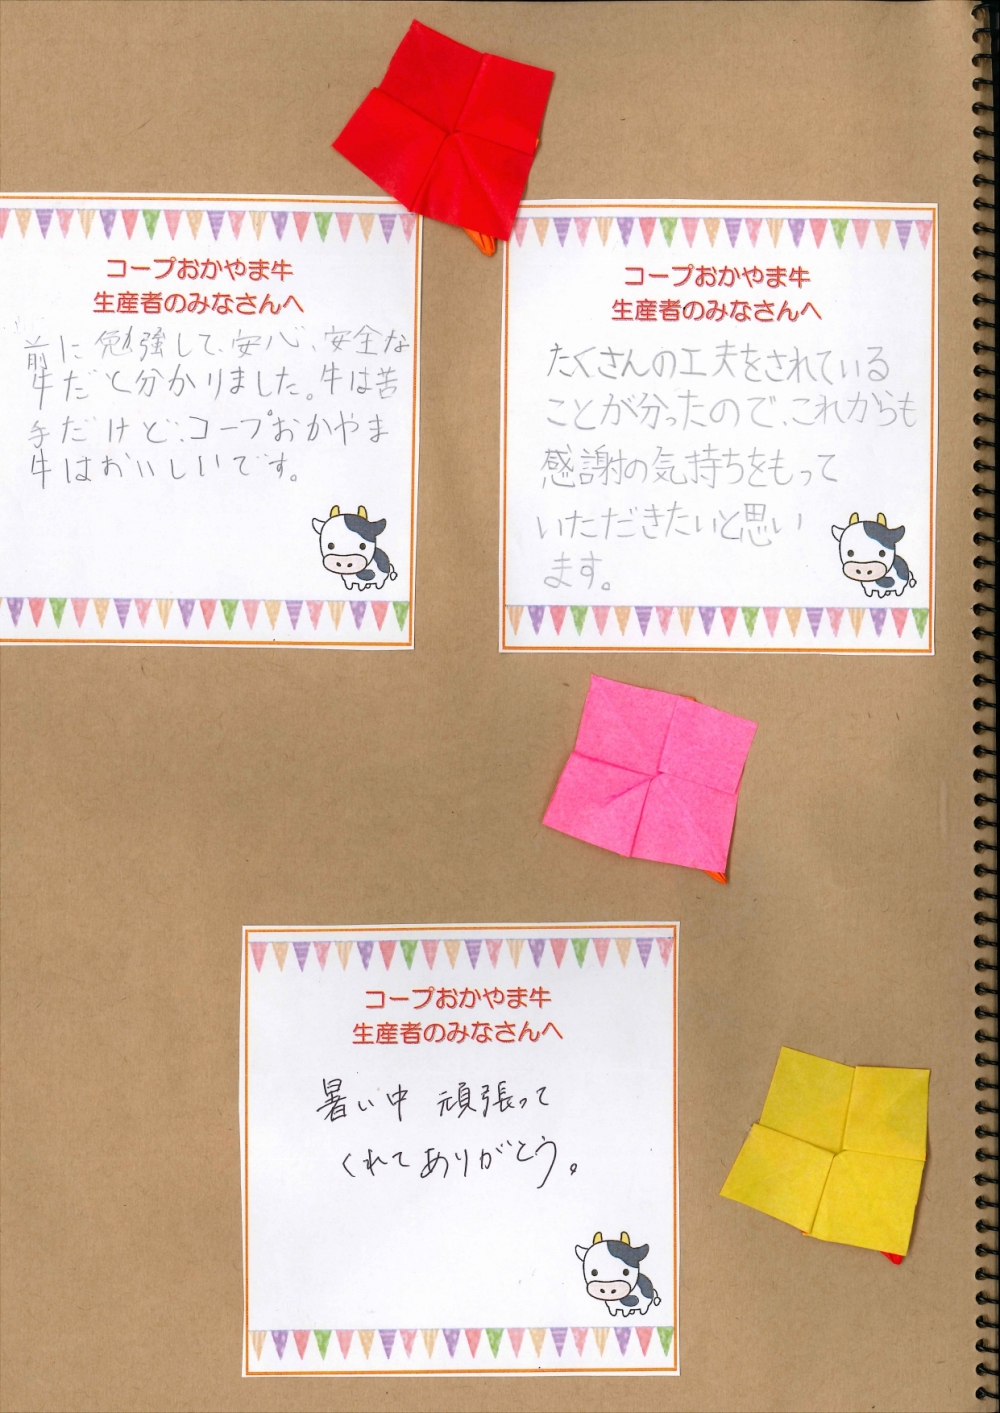 コープおかやま牛
生産者のみなさんへ
前に勉強して、安心、安全な
牛だと分かりました。牛は苦
手だけど、コープおかやま
牛はおいしいです。
コープおかやま牛
生産者のみなさんへ
たくさんの工夫をされている
ことが分ったので、これからも
感謝の気持ちをもって
いただきたいと思い
ます。
コープおかやま牛
生産者のみなさんへ
暑い中 頑張って
くれてありがとう。